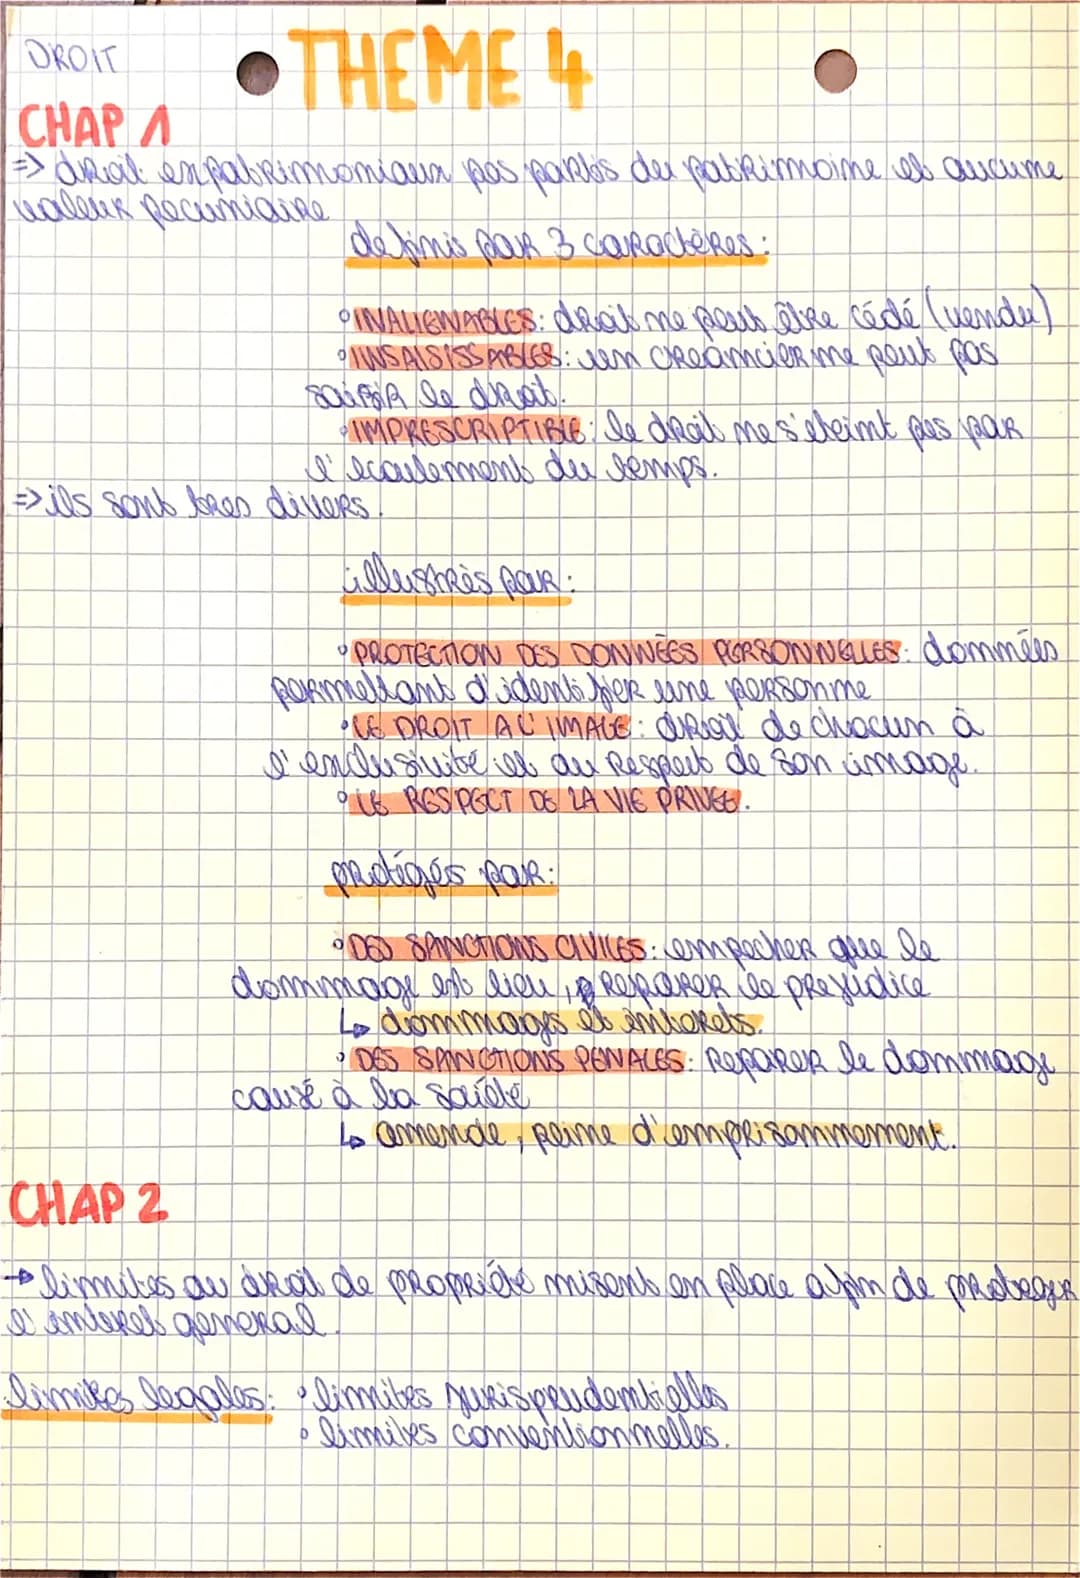 DROIT
THEME 4
CHAP 1
=> droit expatrimoniaux pas partis du patrimoine et aucune
valeur pecuniaire
definis par 3 caractères :
° INALIENABLES : droit ne peut être cédé (vendu)
° INSAISISSABLES : un creancier ne peut pas
saisir le droit.
° IMPRESCRIPTIBLE : le droit ne s'eteint pas par
l'ecoulement du temps.
=> ils sont tres divers.
illustrés par :
° PROTECTION DES DONNÉES PERSONNELLES : données
permettant d'identifier une personne
° LE DROIT A L'IMAGE : droit de chacun à
l'exclusivité et au respect de son image.
° LE RESPECT DE LA VIE PRIVEE.
protégés par :
° DES SANCTIONS CIVILES : empecher que le
dommage est lieu, reparer le prejudice
↳ dommages et interets.
° DES SANCTIONS PENALES : reparer le dommage
causé à la société
↳ amende, peine d'emprisonnement.
CHAP 2
→ limites au droit de propriété misent en place afin de proteger
l'interet general.
limites legales : ° limites jurisprudentielles
° limites conventionnelles.